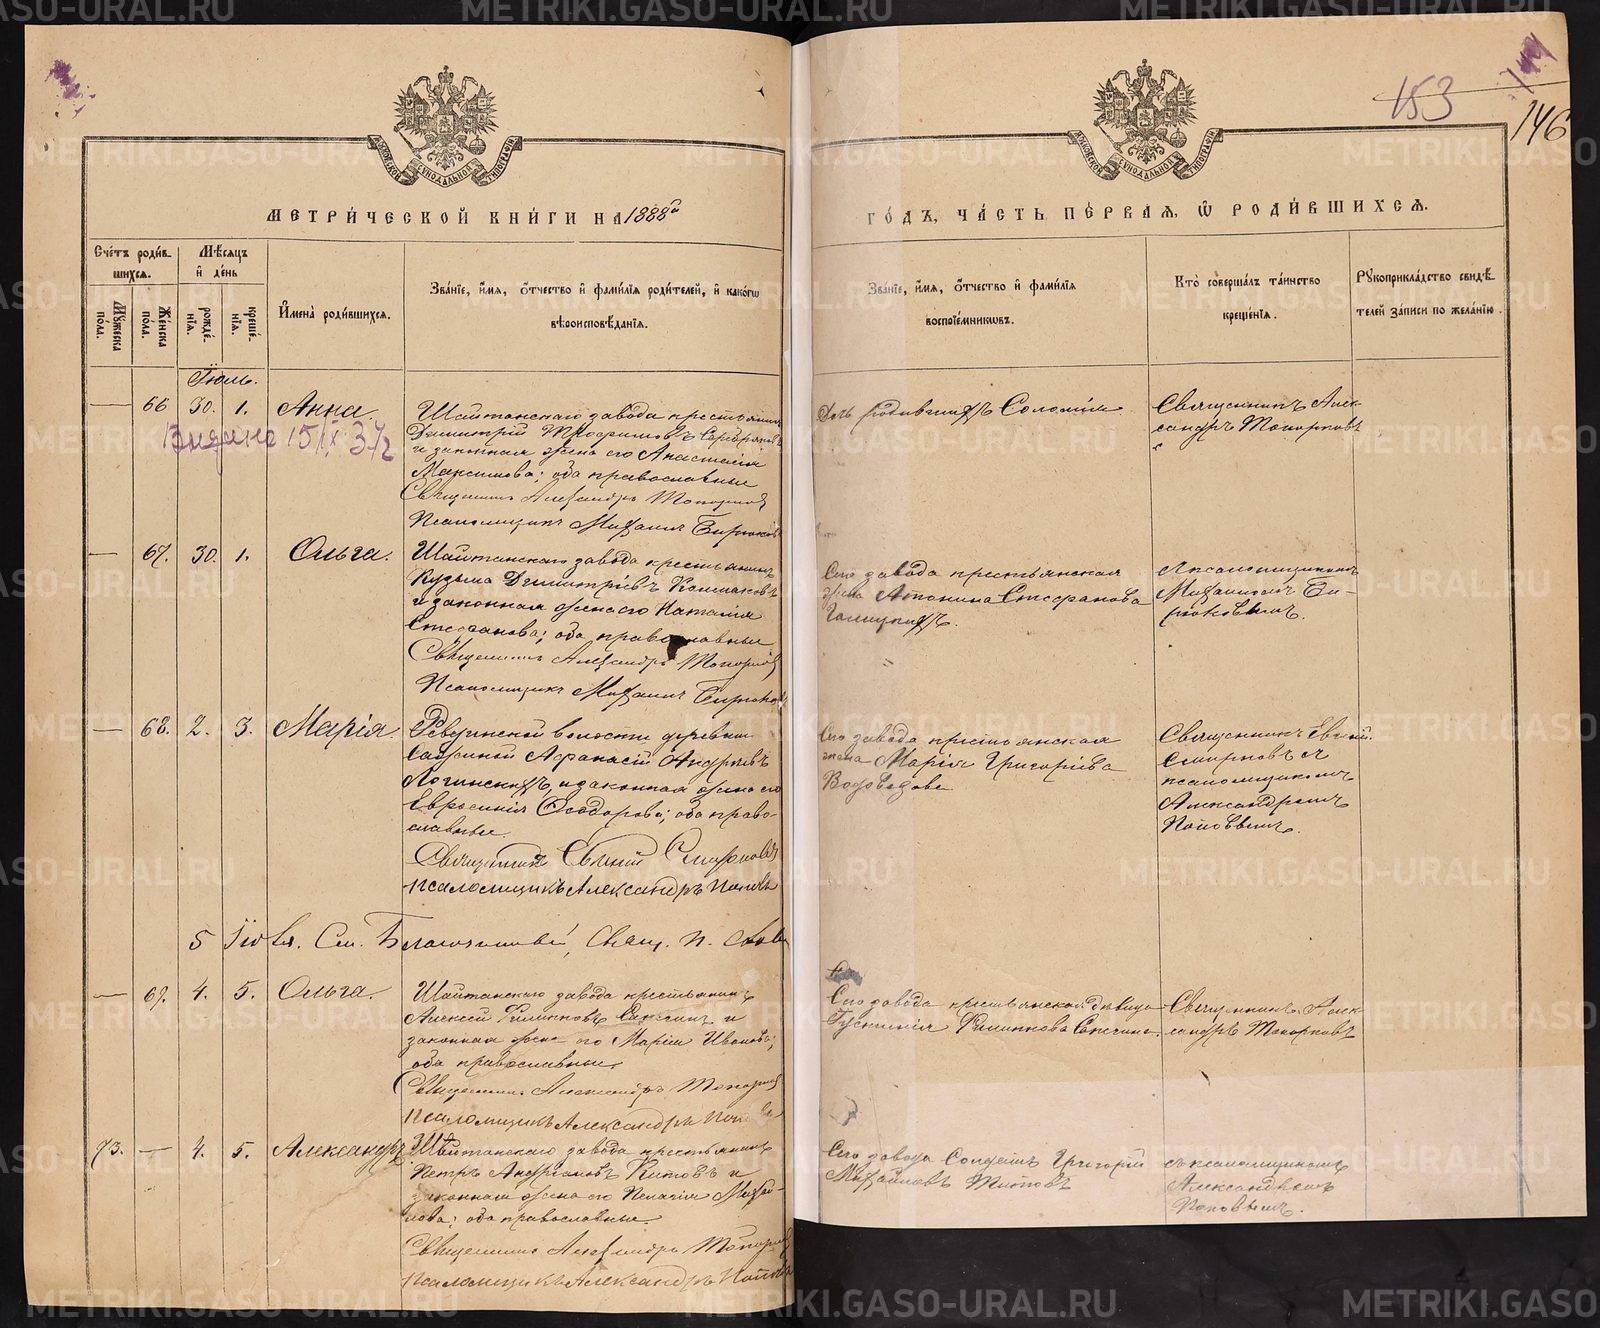 153
146
МОСКОВСКОЙ СѴНОДАЛЬНОЙ ТИПОГРАФІИ
МОСКОВСКОЙ СѴНОДАЛЬНОЙ ТИПОГРАФІИ
МЕТРИ́ЧЕСКОЙ КНИ́ГИ НА 1888й
ГО́ДЪ, ЧА́СТЬ ПЕ́РВАѦ, Ѡ҆ РОДИ́ВШИХСѦ.
Сче́тъ роди́в-
шихсѧ.
Мꙋ́жеска по́ла.
Же́нска по́ла.
Мѣ́сѧцъ
и҆ де́нь
рожде́-
нїѧ.
креще́-
нїѧ.
И҆мена̀ роди́вшихсѧ.
Зва́нїе, и҆́мѧ, ѻ҆́тчество и҆ фами́лїѧ роди́телей, и҆ како́гѡ
вѣроисповѣ́данїѧ.
Зва́нїе, и҆́мѧ, ѻ҆́тчество и҆ фами́лїѧ
воспрїе́мникѡвъ.
Кто̀ соверша́лъ та́инство
креще́нїѧ.
Рꙋкоприкла́дство свидѣ́-
телей за́писи по жела́нїю.
Іюль.
— 66 30. 1. Анна
Шайтанскаго завода крестьянинъ
Димитрій Трофимовъ
и законная жена его Анастасія
Максимова; оба православные
Священникъ Александръ Топорковъ
Псаломщикъ Михаилъ Бирюковъ
Дочь Соломія
Священникъ Алек-
сандръ Топорковъ
Выдано 15/IX 37г
— 67. 30. 1. Ольга.
Шайтанскаго завода крестьянинъ
Кузьма Димитріевъ
и законная жена его Наталія
Стефанова; оба православные
Священникъ Александръ Топорковъ
Псаломщикъ Михаилъ Бирюковъ
Сего завода крестьянская
жена Антонина Стефанова
Галицкихъ.
Михаиломъ Би-
рюковымъ.
— 68. 2. 3. Марія.
волости деревни
Афанасій Андреевъ
Логинскихъ, и законная жена его
Евфросинія Ѳеодорова; оба право-
славные.
Священникъ Евгеній Смирновъ
Псаломщикъ Александръ Поповъ
Сего завода крестьянская
жена Марія Григоріева
Священникъ Евгеній
Смирновъ съ
псаломщикомъ
Александромъ
Поповымъ.
5 Іюля. См. Благочинный, Свящ. П.
— 69. 4. 5. Ольга.
Шайтанскаго завода крестьянинъ
Алексій Филипповъ и
законная жена его Марія Иванова;
оба православные.
Священникъ Александръ Топорковъ
Псаломщикъ Александръ Поповъ
Сего завода крестьянская дѣвица
Филиппова
Священникъ Алек-
сандръ Топорковъ
73. — 4. 5. Александръ
Шайтанскаго завода крестьянинъ
Петръ Титовъ и
законная жена его Пелагія Михаи-
лова; оба православные.
Священникъ Александръ Топорковъ
Псаломщикъ Александръ Поповъ
Сего завода Солдатъ Григорій
Михайловъ Титовъ
съ псаломщикомъ
Александромъ
Поповымъ.
METRIKI.GASO-URAL.RU